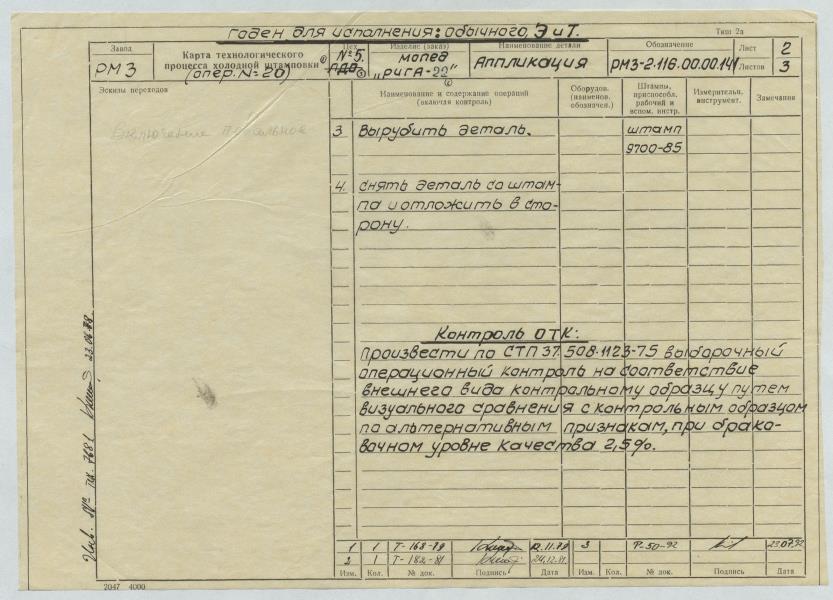 годен для исполнения: обычного, Э и Т.
Тип 2а
Завод
РМЗ
Карта технологического
процесса холодной штамповки
(опер. № 20)
Цех
№5.
Изделие (заказ)
мопед
„рига-22"
Наименование детали
Аппликация
Обозначение
РМЗ-2.116.00.00.141
Лист 2
Листов 3
Эскизы переходов
Наименование и содержание операций
(включая контроль)
Оборудов.
(наимenов.
обозначен.)
Штампы,
приспособл.
рабочий и
вспом. инстр.
Измерительн.
инструмент.
Замечания
3. Вырубить деталь. штамп
9700-85
4. снять деталь со штам-
па и отложить в сто-
рону.
Контроль ОТК:
Произвести по СТП 37.508.1123-75 выборочный
операционный контроль на соответствие
внешнего вида контрольному образцу путем
визуального сравнения с контрольным образцом
по альтернативным признакам, при брако-
вочном уровне качества 2,5%.
1 1 Т-168-79 12.11.79 3 Р-50-92 23.07.92
2 1 Т-182-81 24.12.81.
Изм. Кол. № док. Подпись Дата Изм. Кол. № док. Подпись Дата
2047 4000
Инв. № тех. 7681 23.06.78